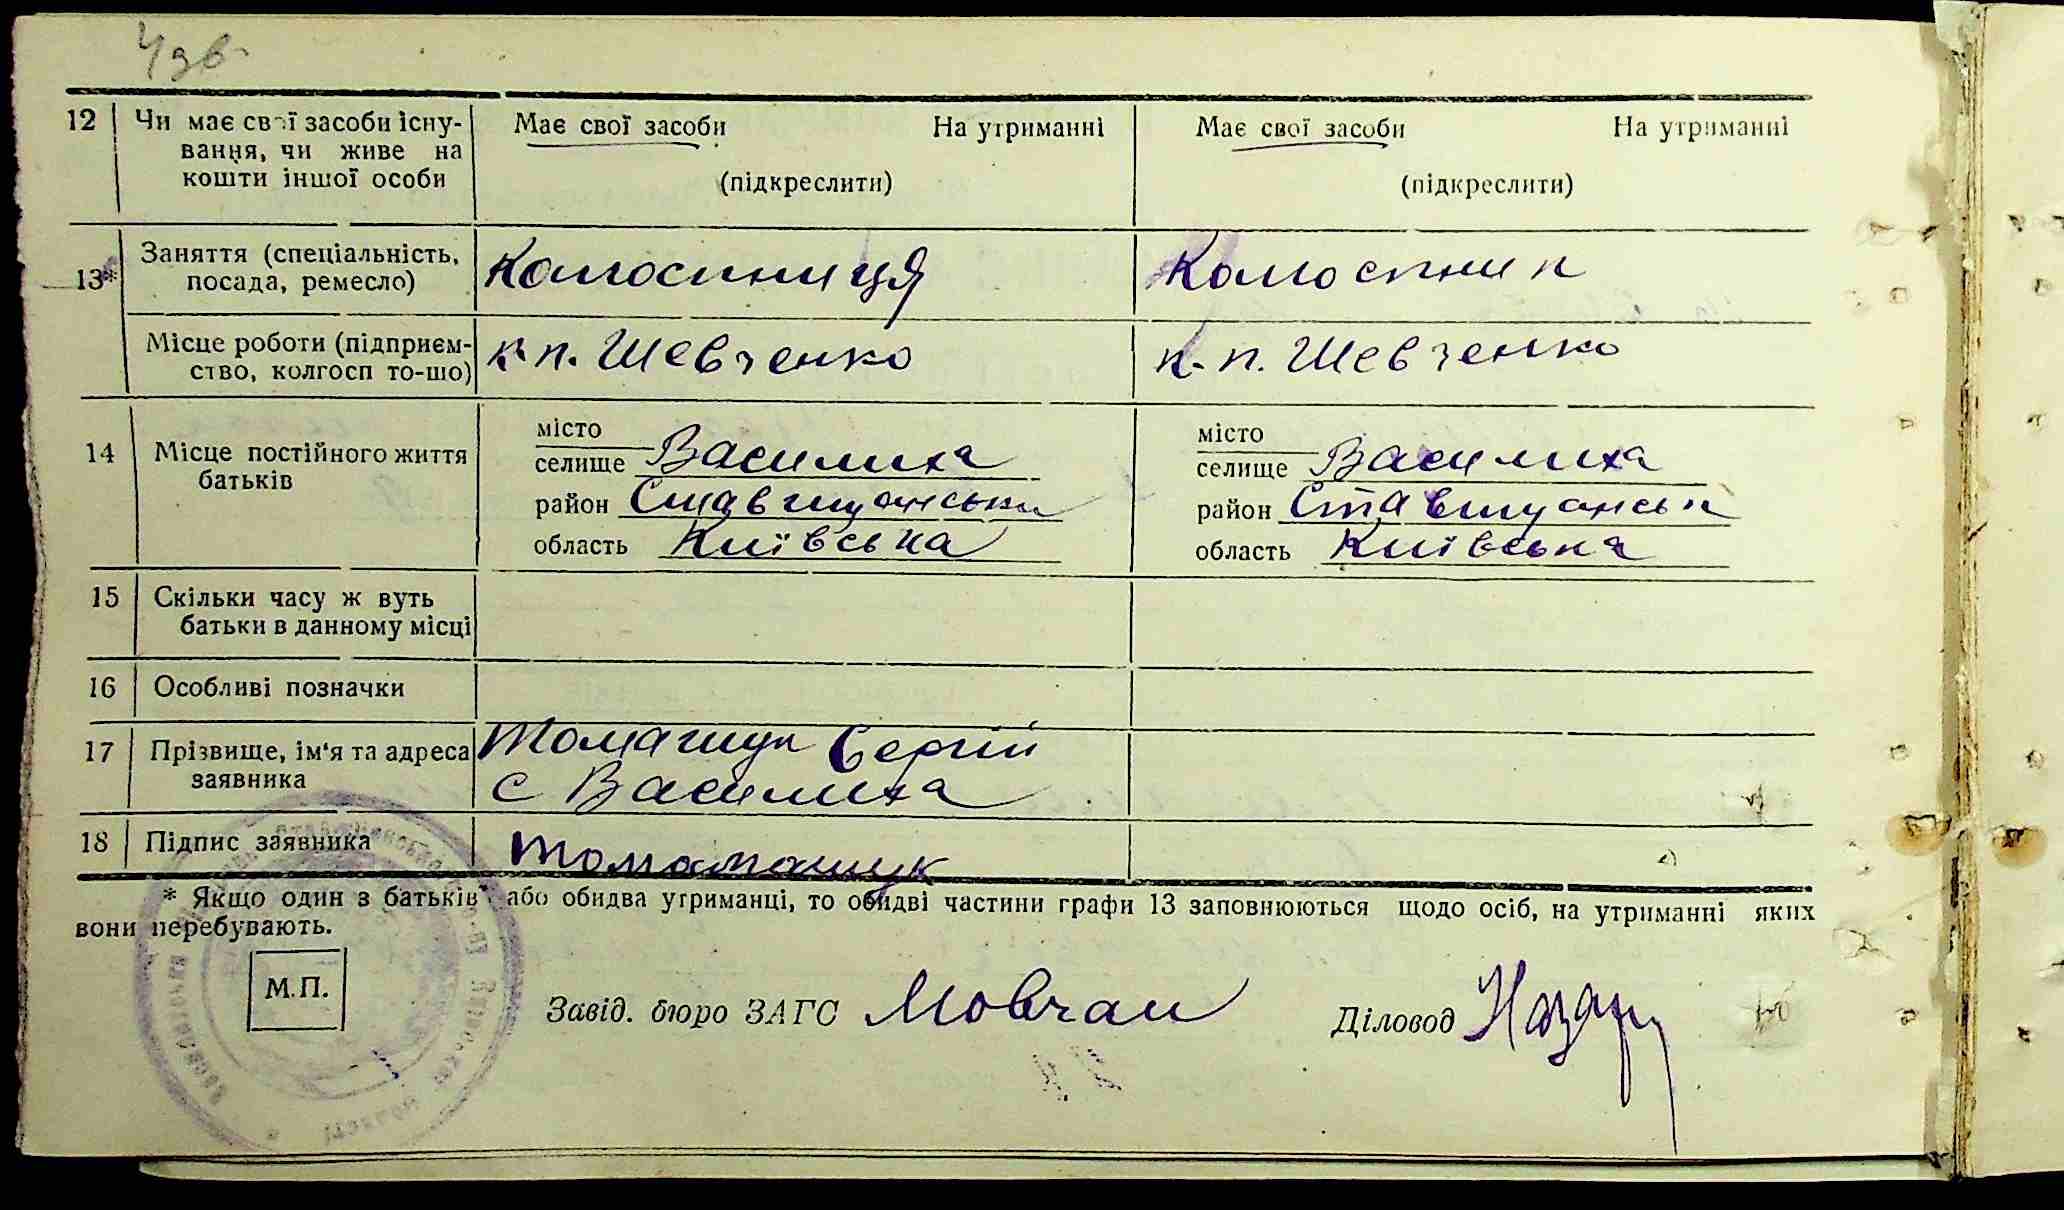 12 Чи має свої засоби існу- Має свої засоби На утриманні Має свої засоби На утриманні
вання, чи живе на
кошти іншої особи (підкреслити) (підкреслити)
13* Заняття (спеціальність, Колгоспниця Колгоспник
посада, ремесло)
Місце роботи (підприєм- к-п. Шевченко к-п. Шевченко
ство, колгосп то-що)
14 Місце постійного життя місто місто
батьків селище Василиха селище Василиха
район Ставищанськи район Ставищанськ
область Київська область Київська
15 Скільки часу ж вуть
батьки в данному місці
16 Особливі позначки
17 Прізвище, ім'я та адреса Томащук Сергій
заявника с Василиха
18 Підпис заявника
* Якщо один з батьків або обидва утриманці, то обидві частини графи 13 заповнюються щодо осіб, на утриманні яких
вони перебувають.
М.П. Завід. бюро ЗАГС Мовчан Діловод